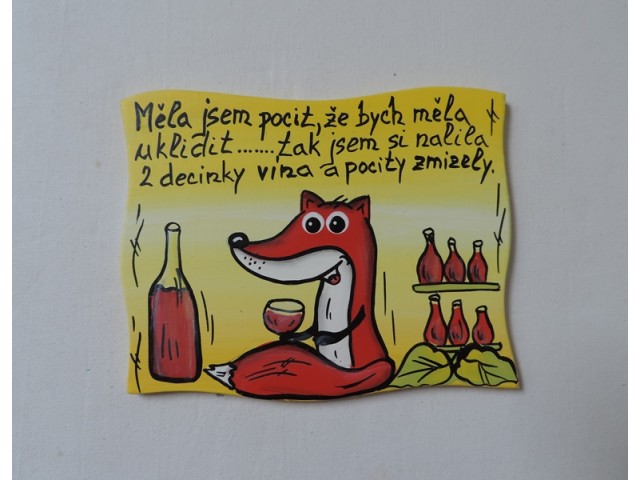 Měla jsem pocit, že bych měla
uklidit.......tak jsem si nalila
2 decinky vína a pocity zmizely.